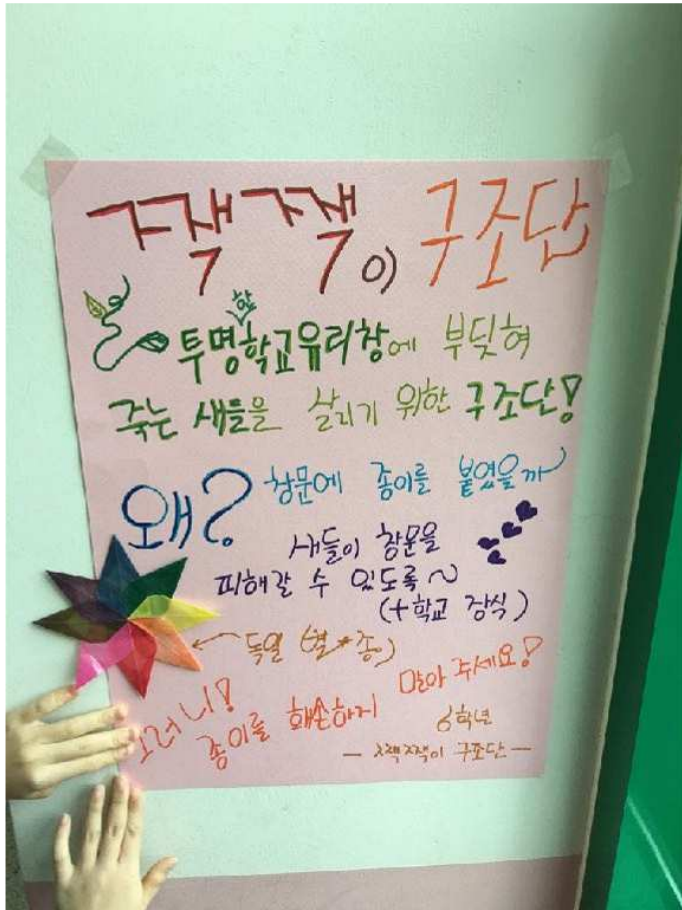 짹짹이 구조단
투명한 학교유리창에 부딪혀
죽는 새들을 살리기 위한 구조단!
왜? 창문에 종이를 붙였을까
새들이 창문을
피해갈 수 있도록~
(+학교 장식)
← 독일 (별★종이)
그러니! 종이를 훼손하지 말아 주세요!
6학년
- 짹짹이 구조단 -